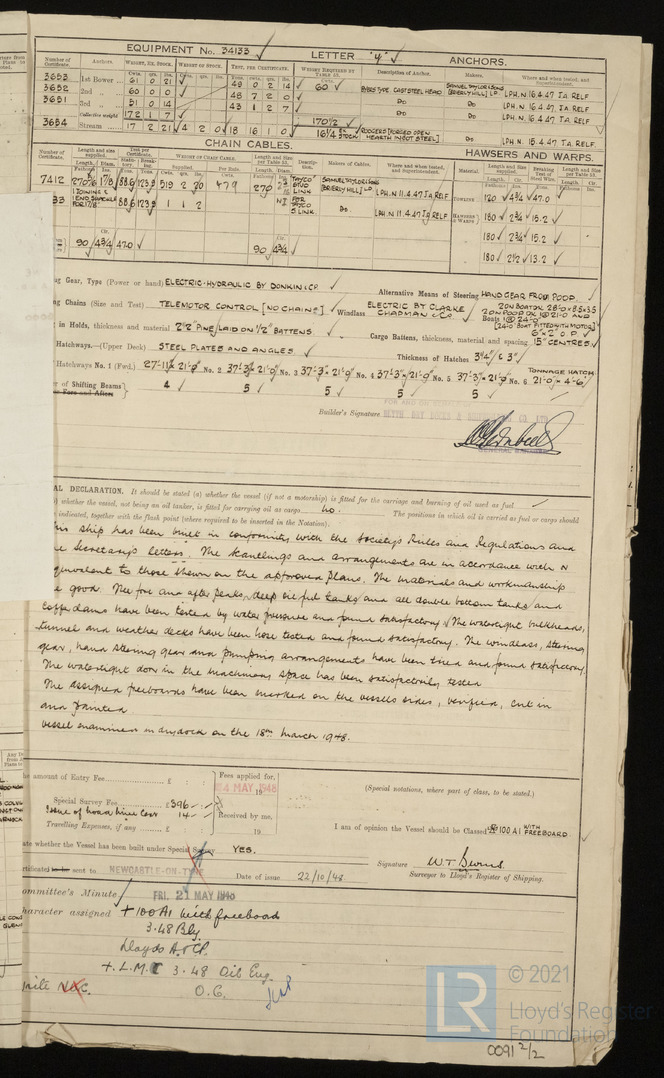 EQUIPMENT No. 34133 LETTER "y" ANCHORS.
Number of Certificate. Anchors. WEIGHT, EX. STOCK. WEIGHT OF STOCK. TEST, PER CERTIFICATE. WEIGHT REQUIRED BY TABLE 53. Description of Anchor. Makers. Where and when tested, and Superintendent.
Cwts. qrs. lbs. Cwts. qrs. lbs. Tons. cwts. qrs. lbs. Cwts.
3653 1st Bower 61 0 21 49 0 2 14 60 BYERS TYPE CAST STEEL HEAD SAMUEL TAYLOR & SONS [BRIERLY HILL] LD LPH.N 16.4.47 J.A. RELF
3652 2nd " 60 0 0 48 7 2 0 Do Do LPH.N. 16.4.47 J.A. RELF
3651 3rd " 51 0 14 43 1 2 7 Do Do LPH.N. 16.4.47 J.A. RELF.
Collective weight 172 1 7 170½
3654 Stream 17 2 21 4 2 0 18 16 1 0 16¼ EX STOCK RODGERS [FORGED OPEN HEARTH INGOT STEEL] Do LPH.N. 15.4.47 J.A. RELF.
CHAIN CABLES. HAWSERS AND WARPS.
Number of Certificate. Length and size supplied. Test per Certificate. WEIGHT OF CHAIN CABLE. Length and Size Per Table 53. Description. Makers of Cables. Where and when tested, and Superintendent. Material. Length and size supplied. Breaking Test of Steel Wire. Length and Size Per Table 53.
7412 270⅞ 1⅞ 88.6 123.9 519 2 20 479 270 TAYCO STUD LINK SAMUEL TAYLOR & SONS [BRIERLY HILL] LD LPH.N 11.4.47 J.A. RELF TOWLINE 120 4¾ 47.0
33 1 JOINING & 1 END SHACKLE FOR 1⅞" 88.6 123.9 1 1 2 FOR TAYCO S. LINK Do LPH.N 11.4.47 J.A. RELF HAWSERS & WARPS 180 2¾ 15.2
180 2¾ 15.2
90 4¾ 47.0 90 4¾ 180 2½ 13.2
g Gear, Type (Power or hand) ELECTRIC-HYDRAULIC BY DONKIN & CO. Alternative Means of Steering HAND GEAR FROM POOP
ng Chains (Size and Test) TELEMOTOR CONTROL [NO CHAINS] Windlass ELECTRIC BY CLARKE CHAPMAN & CO Boats
[24'0" BOAT FITTED WITH MOTOR]
in Holds, thickness and material 2½" PINE / LAID ON ½" BATTENS. Cargo Battens, thickness, material and spacing 6" x 2" O.P. 15" CENTRES
Hatchways.—(Upper Deck) STEEL PLATES AND ANGLES Thickness of Hatches 3"
Hatchways No. 1 (Fwd.) 27'-11½ x 21'-0" No. 2 37'-3" x 21'-0" No. 3 37'-3" x 21'-0" No. 4 37'-3" x 21'-0" No. 5 37'-3" x 21'-0" No. 6 TONNAGE HATCH 21'-0" x 4'-6"
er of Shifting Beams 4 5 5 5 5
or Fore and Afters
FOR AND ON
BLYTH DRY DOCKS & SHIPBUILDING CO. LTD.
Builder's Signature
GENERAL MANAGER
AL DECLARATION. It should be stated (a) whether the vessel (if not a motorship) is fitted for the carriage and burning of oil used as fuel
) whether the vessel, not being an oil tanker, is fitted for carrying oil as cargo No. The positions in which oil is carried as fuel or cargo should
indicated, together with the flash point (where required to be inserted in the Notation).
his ship has been built in conformity with the Society's Rules and Regulations and
e Secretary's letters. The scantlings and arrangements are in accordance with or
equivalent to those shown on the approved plans. The materials and workmanship
e good. The fore and after peaks, deep oil fuel tanks and all double bottom tanks and
cofferdams have been tested by water pressure and found satisfactory. The watertight bulkheads,
tunnel and weather decks have been hose tested and found satisfactory. The windlass, steering
gear, hand steering gear and pumping arrangements have been tried and found satisfactory.
The watertight door in the machinery space has been satisfactorily tested
The assigned freeboards have been marked on the vessels sides, verified, cut in
and painted
Vessel examined in drydock on the 18th March 1948.
he amount of Entry Fee £ : : Fees applied for,
4 MAY 1948
(Special notations, where part of class, to be stated.)
Special Survey Fee £396 : :
14 : : Received by me,
Travelling Expenses, if any £ : : 19
I am of opinion the Vessel should be Classed 100 A1 WITH FREEBOARD
ate whether the Vessel has been built under Special Survey YES.
Signature W.T.
Surveyor to Lloyd's Register of Shipping.
rtificate to be sent to NEWCASTLE-ON-TYNE Date of issue 22/10/48
ommittee's Minute FRI. 21 MAY 1948
haracter assigned + 100A1 with freeboard
3.48 Bly.
Lloyds A & CP.
+ L.M.C 3.48 Oil Eng.
rite O.G.
LR © 2021
Lloyd's Register
Foundation
0091 2/2